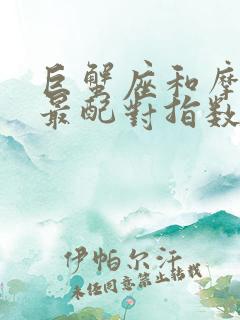 巨蟹座和摩
最配對指数
伊帕尔汗
未经同意禁止转载